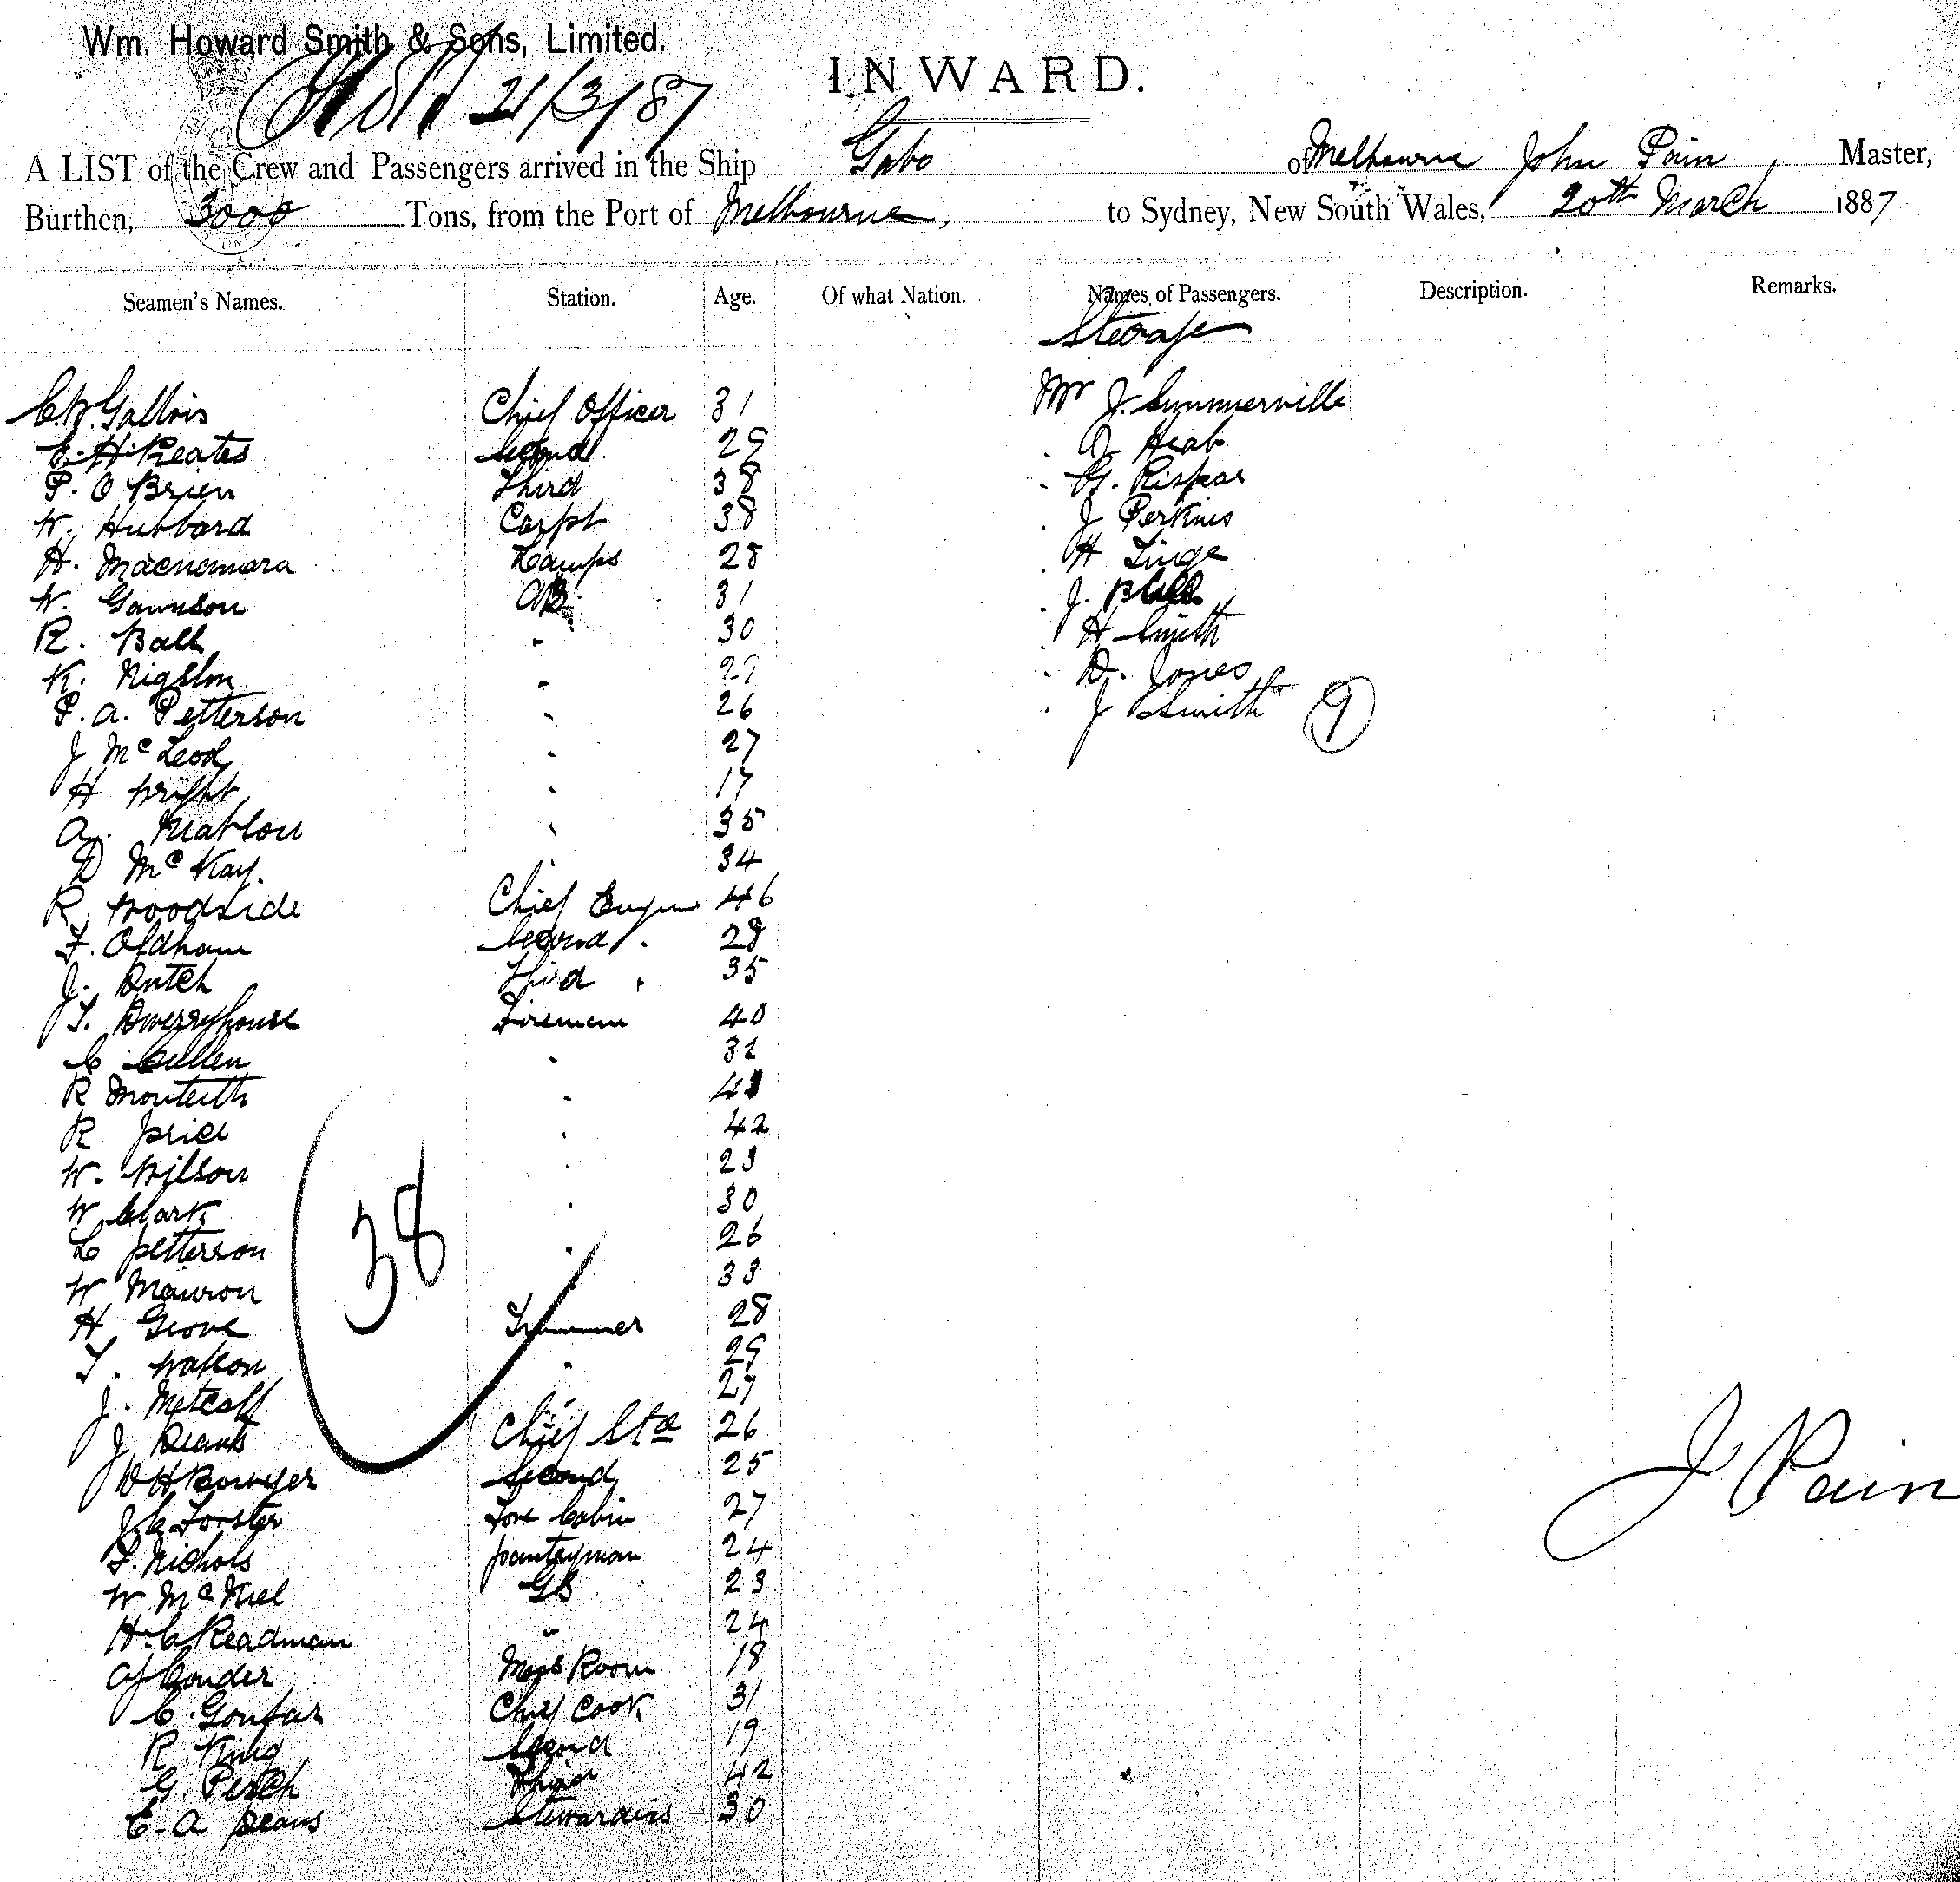 Wm. Howard Smith & Sons, Limited.
21/3/87
INWARD.
A LIST of the Crew and Passengers arrived in the Ship Gabo of Melbourne John Pain, Master,
Burthen, 3000 Tons, from the Port of Melbourne, to Sydney, New South Wales, 20th March 1887
Seamen's Names. Station. Age. Of what Nation. Names of Passengers. Description. Remarks.
Steerage
Gallois Chief Officer 31 Mr J. Summerville
E. H. Keates Second 29
P. O Brien Third 38 G.
W. Hubbard Carpt 38 J Perkins
H. Macnamara Lamps 28 H Linge
W. AB 31 J.
R. Ball " 30 H Smith
K. 29 D. Jones
P. A. Petterson " 26 J Smith 9
J McLeod " 27
H Wright " 17
A. " 35
D McKay. 34
R. Woodside Chief Engin 46
F. Oldham Second " 28
J. Dutch Third " 35
T. Dwerryhouse Firemen 40
C Cullen " 32
R Monteith "
R. Price " 42
W. Wilson "
W Clark " 30
C Petterson " 26
W 33
H Grove Trimmer 28
T. Watson " 29
J. Metcalf 27
38
J Deans Chief Std 26
W H Bowyer Second 25
J. C. Forster Fore Cabin 27
F. Nichols pantryman 24
W McNiel GS 23
H. C Readman " 24
Conder Mess Room 18
C. Chief Cook 31
R King Second 19
G. Third 42
E. A Deans Stewardess 30
J Pain